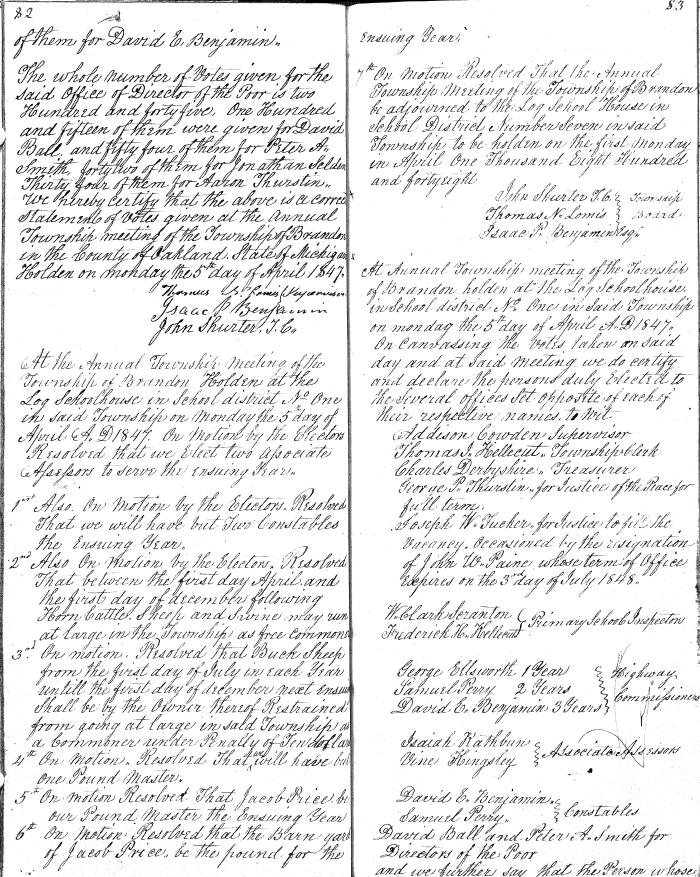 82
of them for David E. Benjamin.
The whole number of Votes given for the
said Office of Director of the Poor is two
Hundred and forty five, One Hundred
and fifteen of them were given for David
Ball, and fifty four of them for Peter A.
Smith, forty two of them for Jonathan Selden
Thirty four of them for Aaron Thurstin.
We hereby certify that the above is a correc
Statement of Votes given at the Annual
Township meeting of the Township of Brandon
in the County of Oakland. State of Michigan
Holden on monday the 5th day of April 1847.
Thomas N. Lomis Supervisor
Isaac P Benjamin
John Shurter. T.C.
At the Annual Township Meeting of the
Township of Brandon Holden at the
Log Schoolhouse in School district No One
in said Township on Monday the 5th day of
April A.D 1847. On Motion by the Electors
Resolved that we Elect two Associate
Assessors to serve the Ensuing Year.
1st Also. On Motion by the Electors. Resolved
That we will have but Two Constables
the Ensuing Year.
2nd Also On Motion by the Electors. Resolved
That between the first day April and
the first day of december following
Horn Cattle. Sheep and Swine may run
at large in the Township as free commone
3rd On motion. Resolved that Buck Sheep
from the first day of July in each Year
untill the first day of december next Ensui
Shall be by the Owner thereof Restrained
from going at large in said Township as
a Commoner under Penalty of Ten dollars
4th On Motion. Resolved That we will have but
one Pound Master.
5th On motion Resolved That Jacob Price be
our Pound Master the Ensuing Year
6th On Motion Resolved that the Barn yard
of Jacob Price, be the pound for the
83
Ensuing Year.
7th On Motion Resolved That the Annual
Township Meeting of the Township of Brandon
be adjourned to the Log School House in
School District Number Seven in said
Township to be holden on the first Monday
in April One Thousand Eight Hundred
and forty eight
John Shurter T.C. Township
Thomas N. Lomis Board
Isaac P. Benjamin Esq.
At Annual Township meeting of the Township
of Brandon holden at the Log Schoolhouse
in School district No. One in said Township
on monday the 5th day of April A.D 1847.
On canvassing the votes taken on said
day and at said Meeting we do certify
and declare the persons duly Elected to
the several offices set opposite of each of
their respective names. to Wit.
Addison Cowden Supervisor
Thomas J. Hellecut. Township Clerk
Charles Derbyshire. Treasurer
George P. Thurstin. for Justice of the Peace for
full term.
Joseph W. Tucker. for Justice to fill the
Vacancy. Occasioned by the resignation
of John W. Paine whose term of Office
Expires on the 3d day of July 1848.
W. Clark Scranton Primary School Inspectors
Frederich H. Hellecut
George Ellsworth 1 Year Highway
Samuel Perry 2 Years Commissioners
David E. Benjamin 3 Years
Isaiah Rathbun Associate Assessors
Vine Kingsley
David E. Benjamin. Constables
Samuel Perry.
David Ball and Peter A. Smith for
Directors of the Poor
and we further say that the Person whose